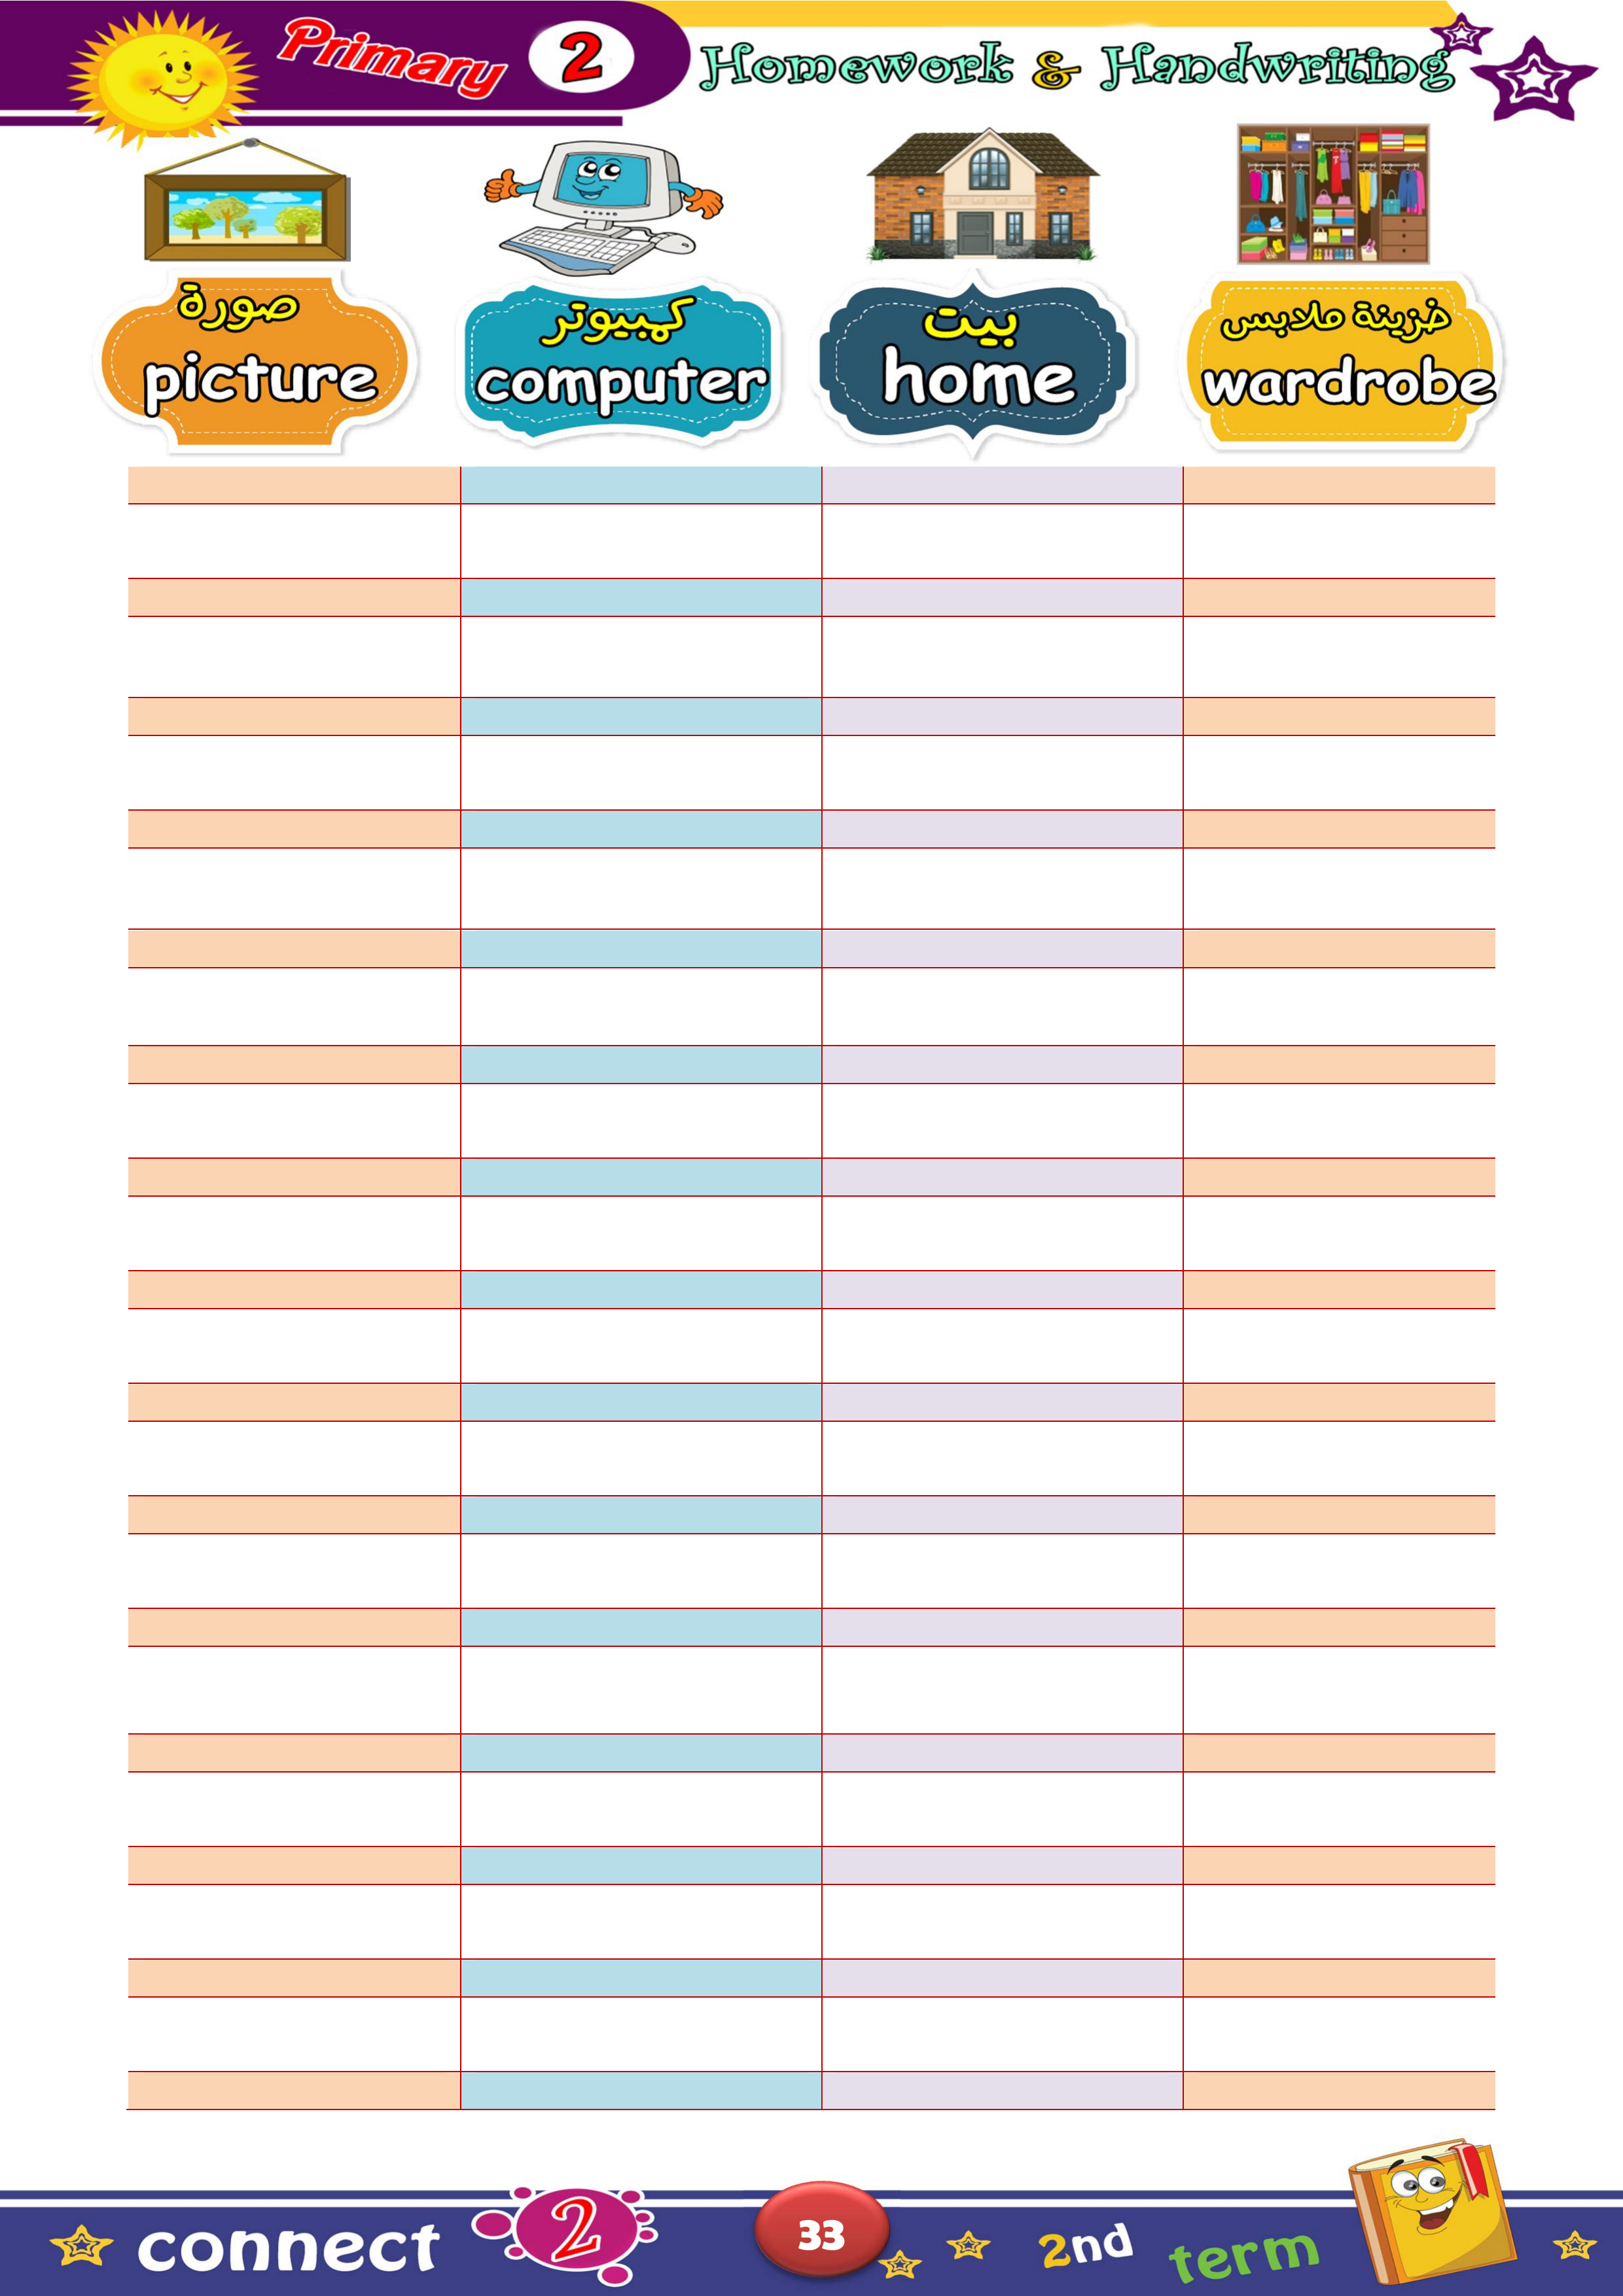 Primary 2 Homework & Handwriting
صورة
picture
كمبيوتر
computer
بيت
home
خزينة ملابس
wardrobe
connect 2 33 2nd term